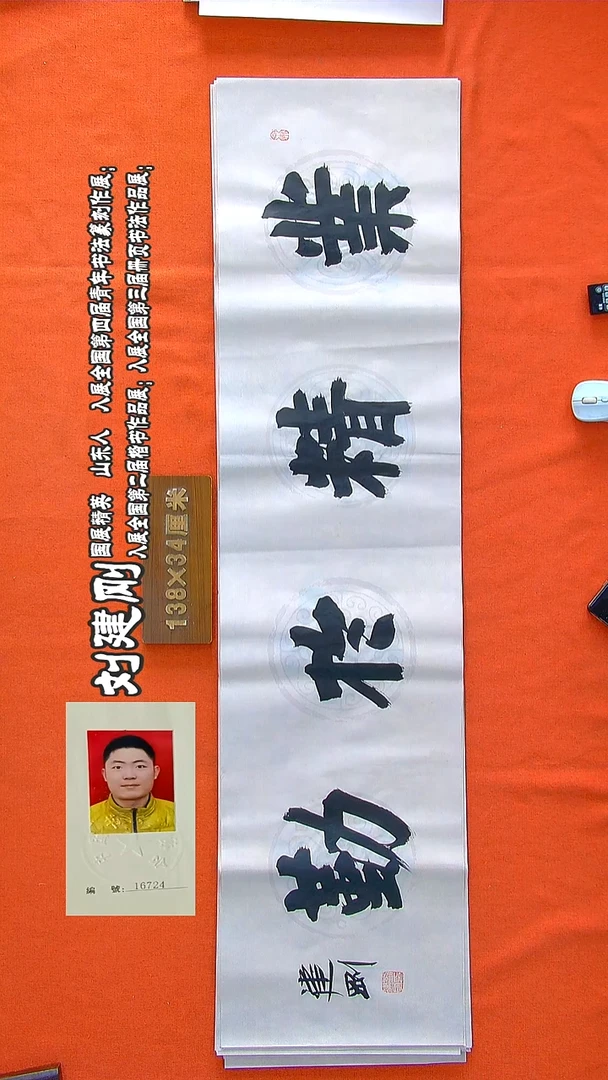 刘建刚
国展精英 山东人 入展全国第四届青年书法篆刻作展;
入展全国第二届楷书作品展;入展全国第三届册页书法作品展;
138×34厘米
業精於勤
建剛
編 號:16724